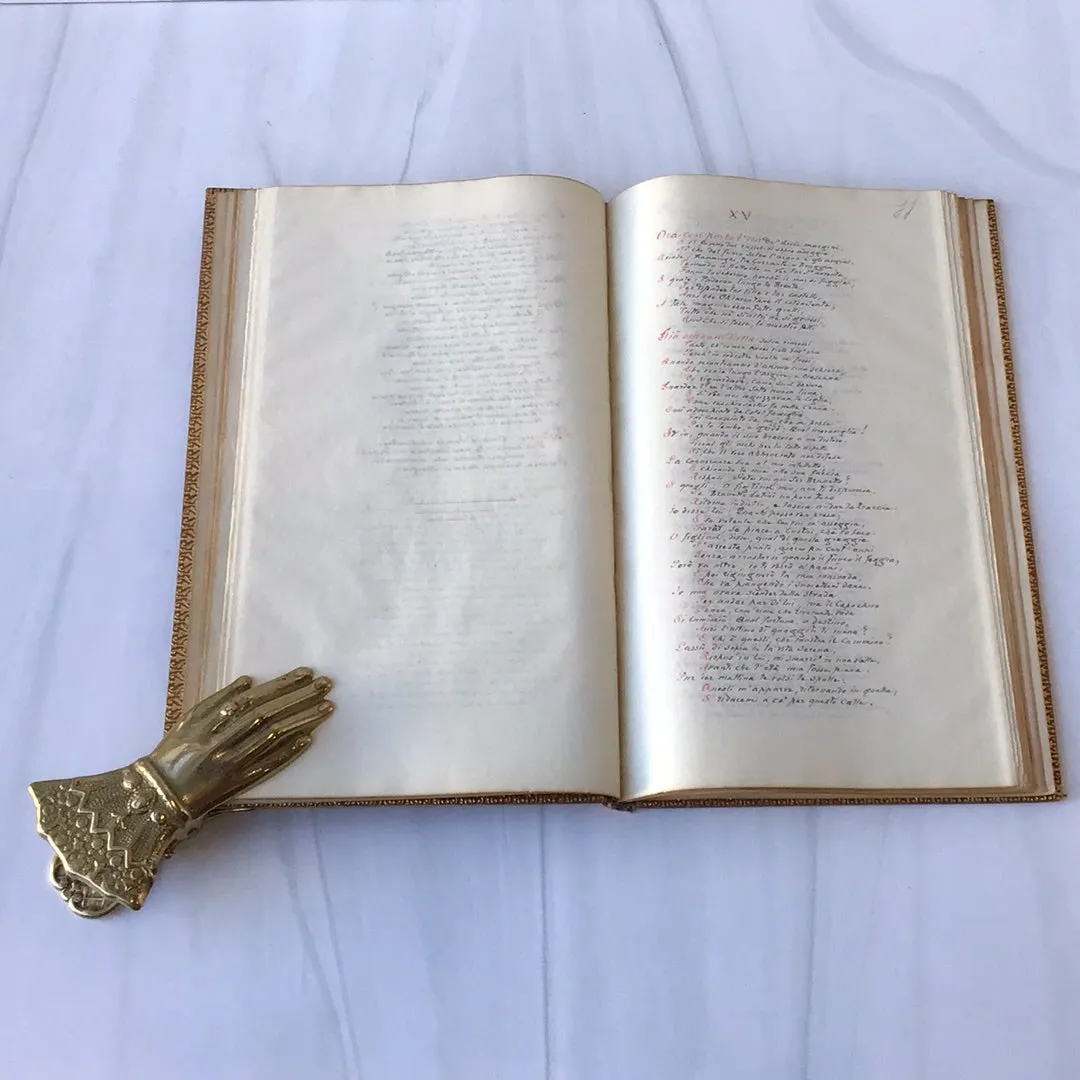 XV
Ora cen porta l'un de' duri margini,
E il fummo del ruscel di sopra aduggia
Sì che dal fuoco salva l'acqua e gli argini.
Quale i Fiamminghi tra Guzzante e Bruggia
Temendo il fiotto che in ver lor s'avventa,
Fanno lo schermo, perchè il mar si fuggia;
E quale i Padovan lungo la Brenta,
Per difender lor ville e lor castelli,
Anzi che Chiarentana il caldo senta;
A tale imagine eran fatti quelli,
Tutto che nè sì alti nè sì grossi,
Qual che si fosse, lo maestro felli.
Già eravam dalla selva rimossi
Tanto, ch'io non avrei visto dov'era
Perch'io indietro rivolto mi fossi,
Quando incontrammo d'anime una schiera,
Che venia lungo l'argine, e ciascuna
Ci riguardava, come suol da sera
Guardar l'un l'altro sotto nuova luna;
E ver noi aguzzavan le ciglia,
Come vecchio sartor fa nella cruna.
Così adocchiato da cotal famiglia
Fui conosciuto da un, che mi prese
Per lo lembo, e gridò: Qual maraviglia!
Ed io, quando il suo braccio a me distese
Ficcai gli occhi per lo cotto aspetto
Sì che il viso abbruciato non difese
La conoscenza sua al mio intelletto:
E chinando la mia alla sua faccia
Risposi: Siete voi qui ser Brunetto?
E quegli: O figliuol mio, non ti dispiaccia
Se Brunetto Latini un poco teco
Ritorna indietro e lascia andar la traccia.
Io dissi lui: Quanto posso ven preco;
E se volete che con voi m'asseggia,
Faròl, se piace a costui, chè vo seco.
O figliuol, disse, qual di questa greggia
S'arresta punto, giace poi cent'anni
Senza arrostarsi quando il fuoco il feggia;
Però va oltre, io ti verrò a' panni,
E poi rigiugnerò la mia masnada,
Che va piangendo i suoi eterni danni.
Io non osava scender della strada
Per andar par di lui; ma il capo chino
Tenea, com'uom che riverente vada.
Ei cominciò: Qual fortuna, o destino,
Anzi l'ultimo dì quaggiù ti mena?
E chi è questi, che mostra il cammino?
Lassù di sopra in la vita serena,
Rispos'io lui, mi smarri' in una valle,
Avanti che l'età mia fosse piena.
Pur ier mattina le volsi le spalle:
Questi m'apparve, ritornando in quella,
E riducemi a ca' per questo calle.